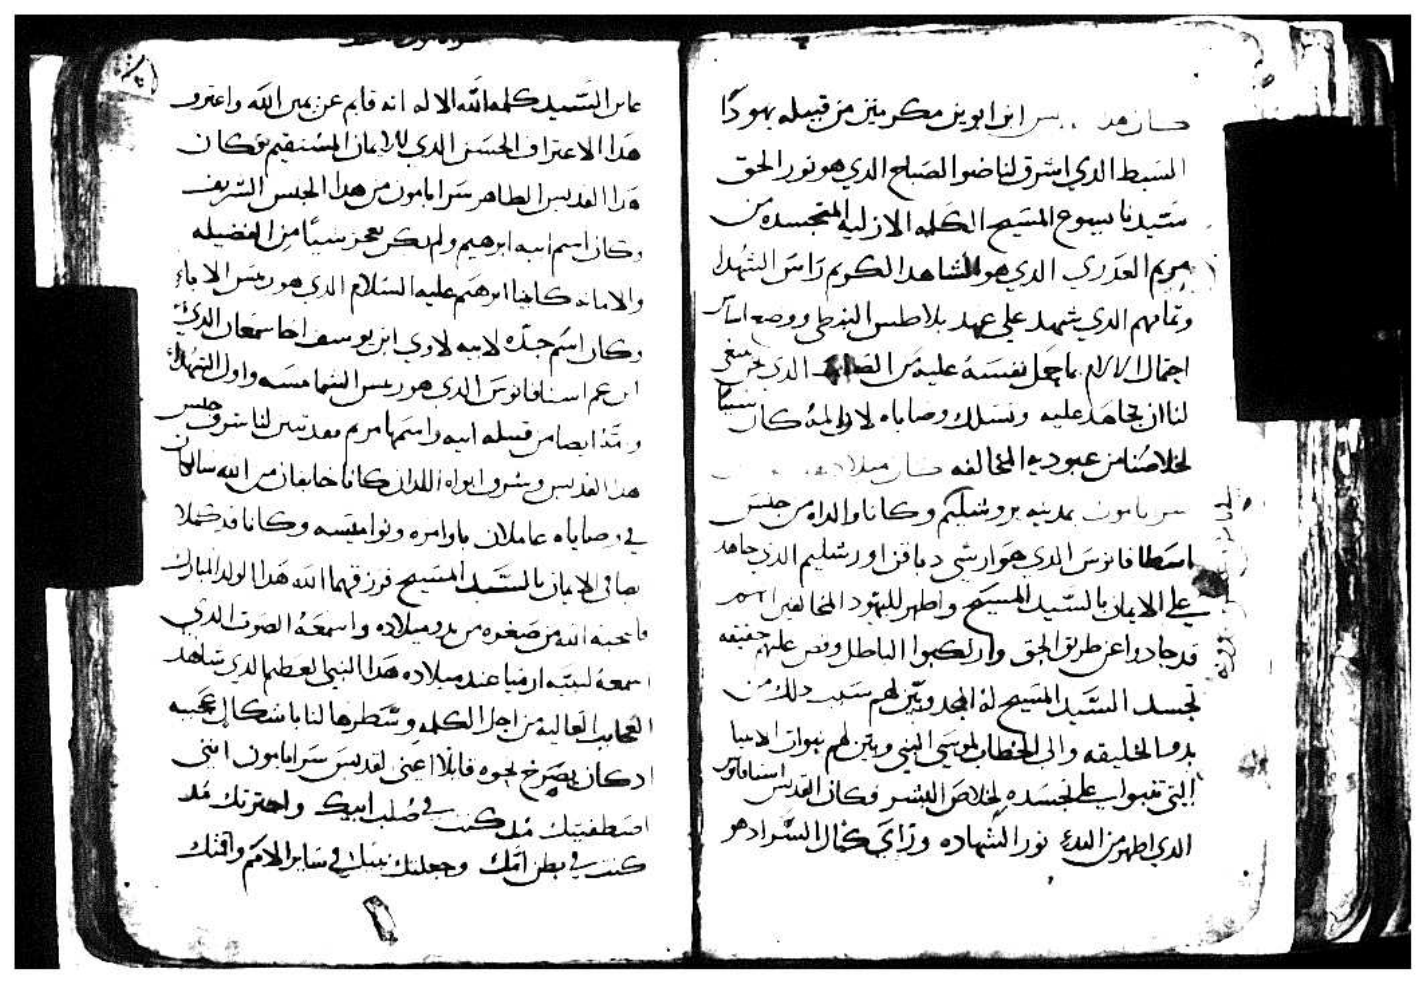 كان هذا ابن ابوين مكرمين من قبيله يهودا
السبط الدي اشرق لنا ضوا الصباح الدي هو نور الحق
سيدنا يسوع المسيح الكلمه الازليه المتجسده من
مريم العدري الدي هو الشاهد الكريم راس الشهدا
وتمامهم الدي شهد علي عهد بلاطس البنطي ووضع اساس
احتمال الالام ما جعل نفسه عليه من الدي نحن ينبغي
لنا ان نجاهد عليه ونسلك وصاياه لان المه كان سببًا
لخلاصنا من عبوديه المخالفه كان ميلاد
سرابامون بمدينه يروشليم وكانا والداه من جنس
اسطافانوس الدي هو ارشي دياقن اورشليم الدي جاهد
علي الايمان بالسيد المسيح واظهر لليهود المخالفين انهم
قد حادوا عن طريق الحق وارتكبوا الباطل وفص عليهم حقيقه
تجسد السيد المسيح له المجد وبين لهم سبب دلك من
بدو الخليقه والي الخطاب لموسي النبي وبين لهم نبوات الانبيا
التي تنبوا بها علي تجسده لخلاص البشر فكان القديس اسطافانوس
الدي اظهر من البدء نور الشهاده وراي كمال السر اد هو
عاين السيد كلمه الله الاله انه قايم عن يمين الله واعترف
هدا الاعتراف الحسن الدي للايمان المستقيم وكان
هدا القديس الطاهر سرابامون من هدا الجنس الشريف
وكان اسم ابيه ابرهيم ولم يكن يعجز شيًا من الفضيله
والامانه كابينا ابرهيم عليه السلام الدي هو ريس الاباء
وكان اسم جده لابيه لاوي ابن يوسف اخا سمعان الدي
ابن عم اسطافانوس الدي هو ريس الشمامسه واول الشهدا
و ايضا من قبيله ابيه واسمها مريم فقد تبين لنا شرف جنس
هدا القديس وشرف ابواه اللدان كانا خايفان من الله سالكان
في وصاياه عاملان باوامره ونواميسه وكانا قد كملا
ايضا في الايمان بالسيد المسيح فرزقهما الله هدا الولد المبارك
فاحبه الله من صغره من بدو ميلاده واسمعه الصوت الدي
اسمعه لنبيه ارميا عند ميلاده هدا النبي العظيم الدي شاهد
العجايب العاليه من اجل الكلمه وسطرها لنا باشكال عجيبه
اد كان يصرخ نحوه قايلا اعني القديس سرابامون انني
اصطفيتك مند كنت في صلب ابيك واخترتك مند
كنت في بطن امك وجعلتك نبيًا في ساير الامم واقمتك